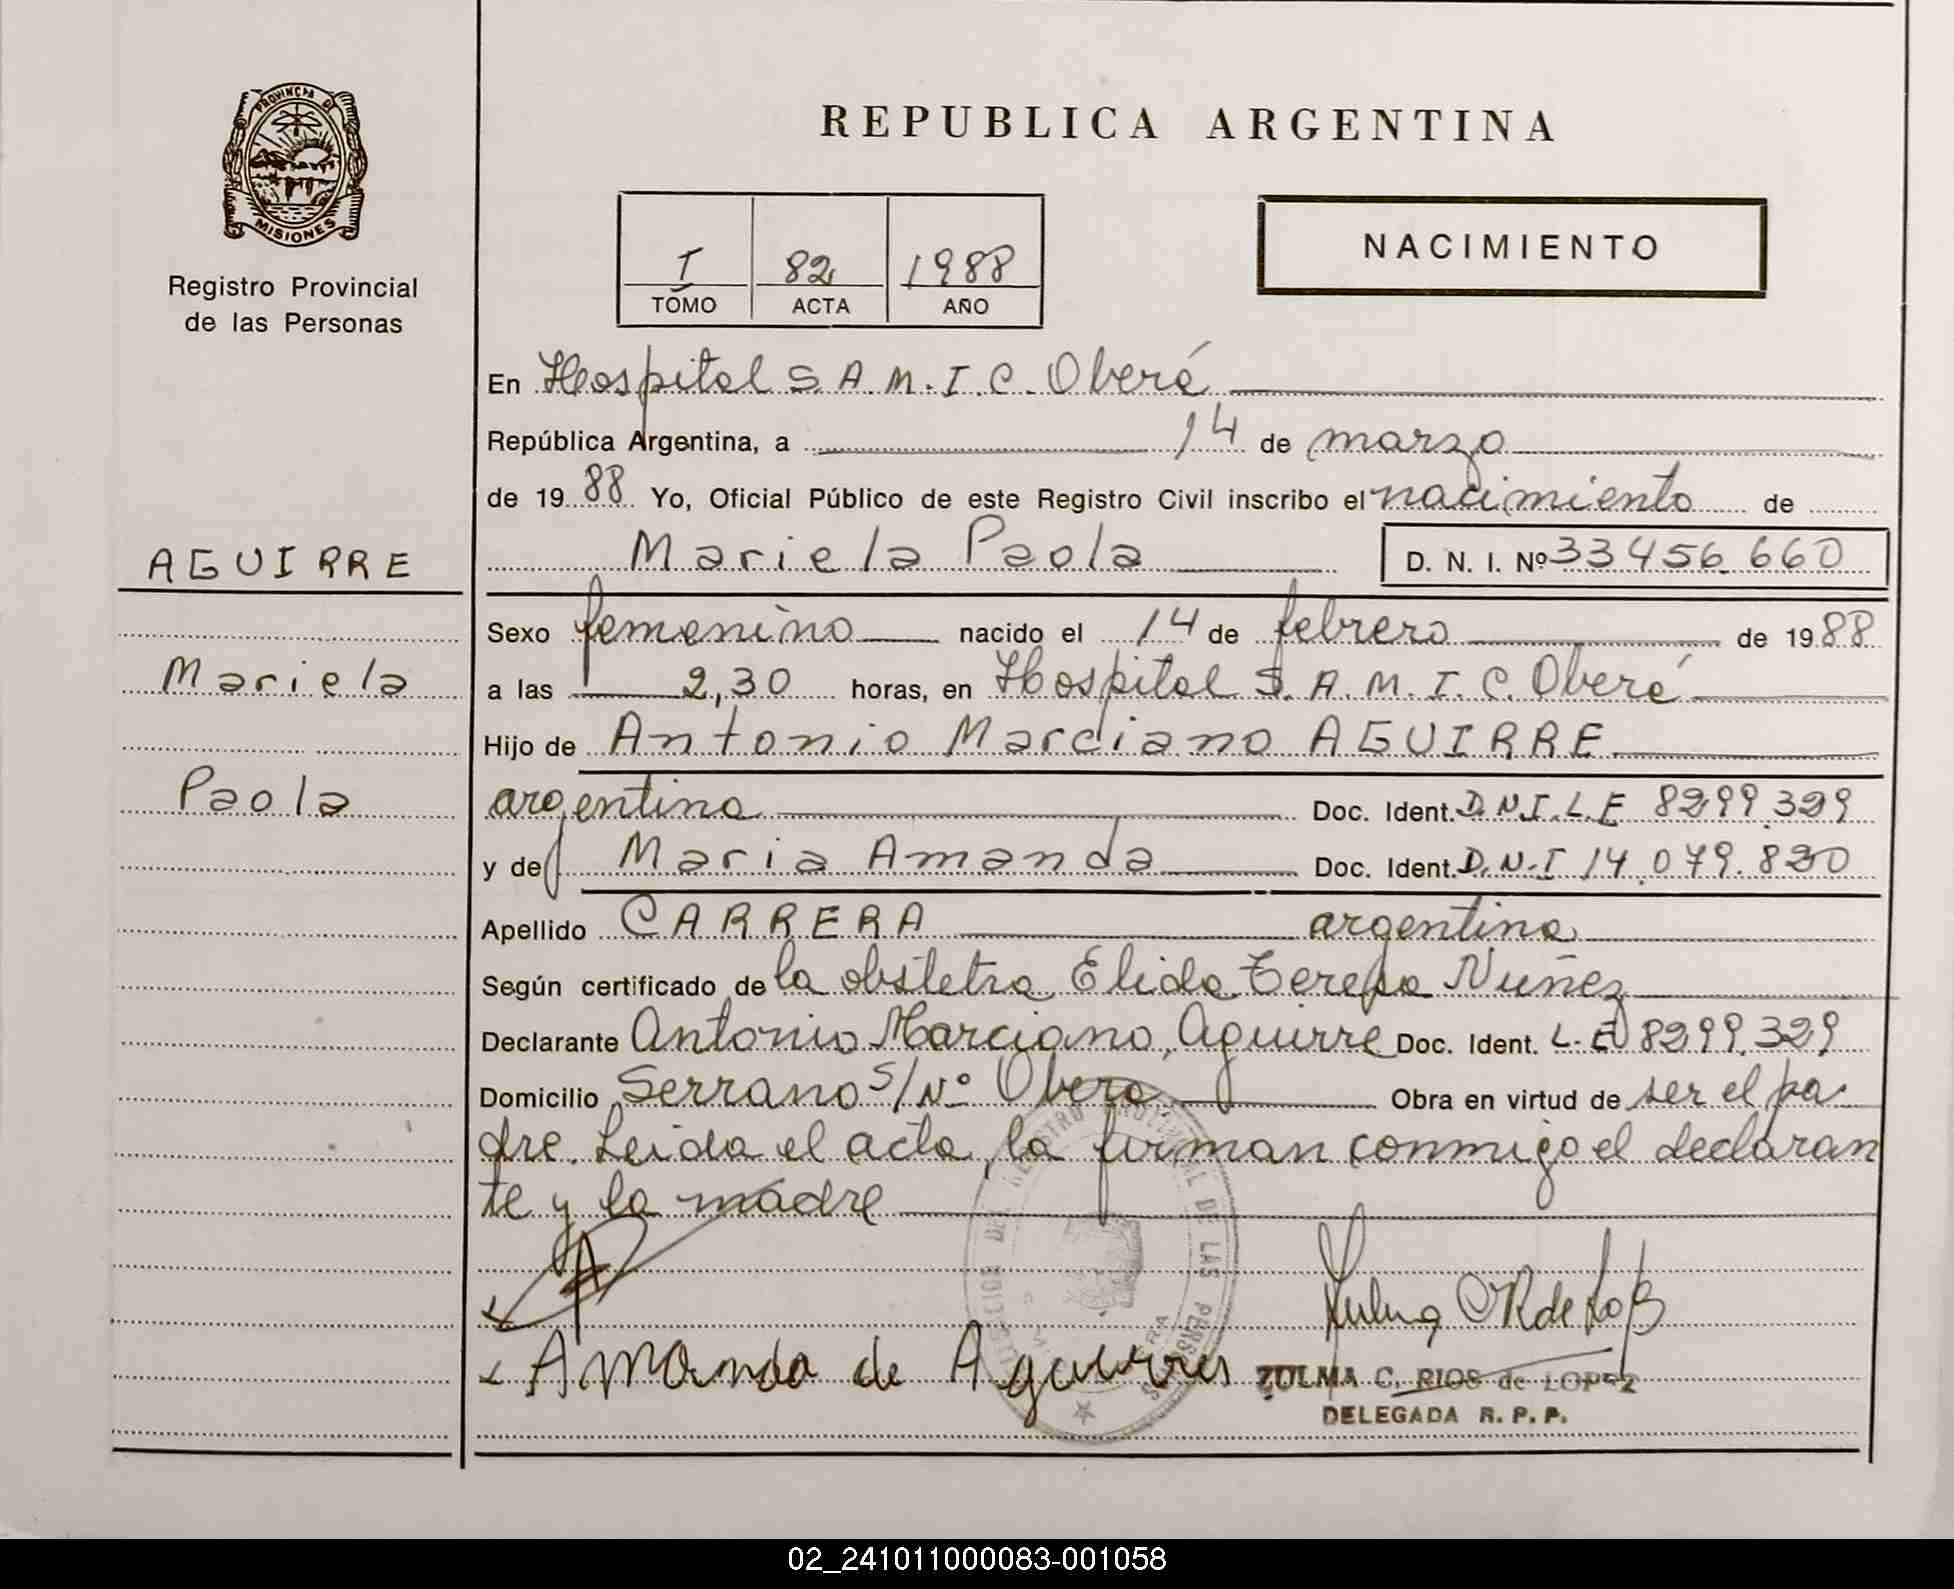 PROVINCIA DE
MISIONES
Registro Provincial
de las Personas
AGUIRRE
Mariela
Paola
REPUBLICA ARGENTINA
I 82 1988
TOMO ACTA AÑO
NACIMIENTO
En Hospital S.A.M.I.C. Oberá
República Argentina, a 14 de marzo
de 19 88 Yo, Oficial Público de este Registro Civil inscribo el nacimiento de
Mariela Paola D. N. I. Nº 33 456 660
Sexo femenino nacido el 14 de febrero de 19 88
a las 2,30 horas, en Hospital S.A.M.I.C. Oberá
Hijo de Antonio Marciano AGUIRRE
argentino Doc. Ident. D.N.I.L.E 8299.329
y de Maria Amanda Doc. Ident. D.N.I 14.079.830
Apellido CARRERA argentina
Según certificado de la obstetra Elida Teresa Nuñez
Declarante Antonio Marciano Aguirre Doc. Ident. L.E 8299.329
Domicilio Serrano s/Nº Obera Obra en virtud de ser el pa-
dre. Leida el acta, la firman conmigo el declaran
te y la madre
Amanda de Aguirres
ZULMA C. RIOS de LOPEZ
DELEGADA R. P. P.
02_241011000083-001058